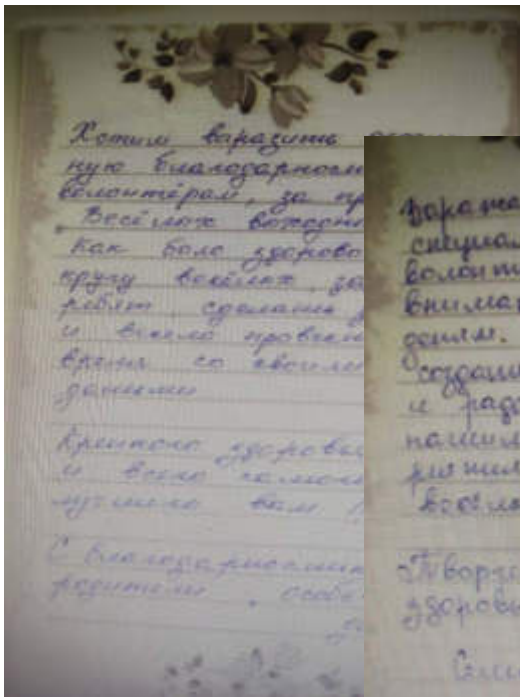 Хотим варазить
ную благодарнос
волонтёрам, за пр
"Весёлых вожат
Как было здорово
кругу весёлых, за
ребят, сделать
и весело провест
время со своими
даными
Крепкого здоровь
и всего самого
лучшего вам!
С благодарностью
родители, особ
Ваража
специал
волонт
вниман
детям.
создани
и радо
нашим
весёл
Творче
здоровь